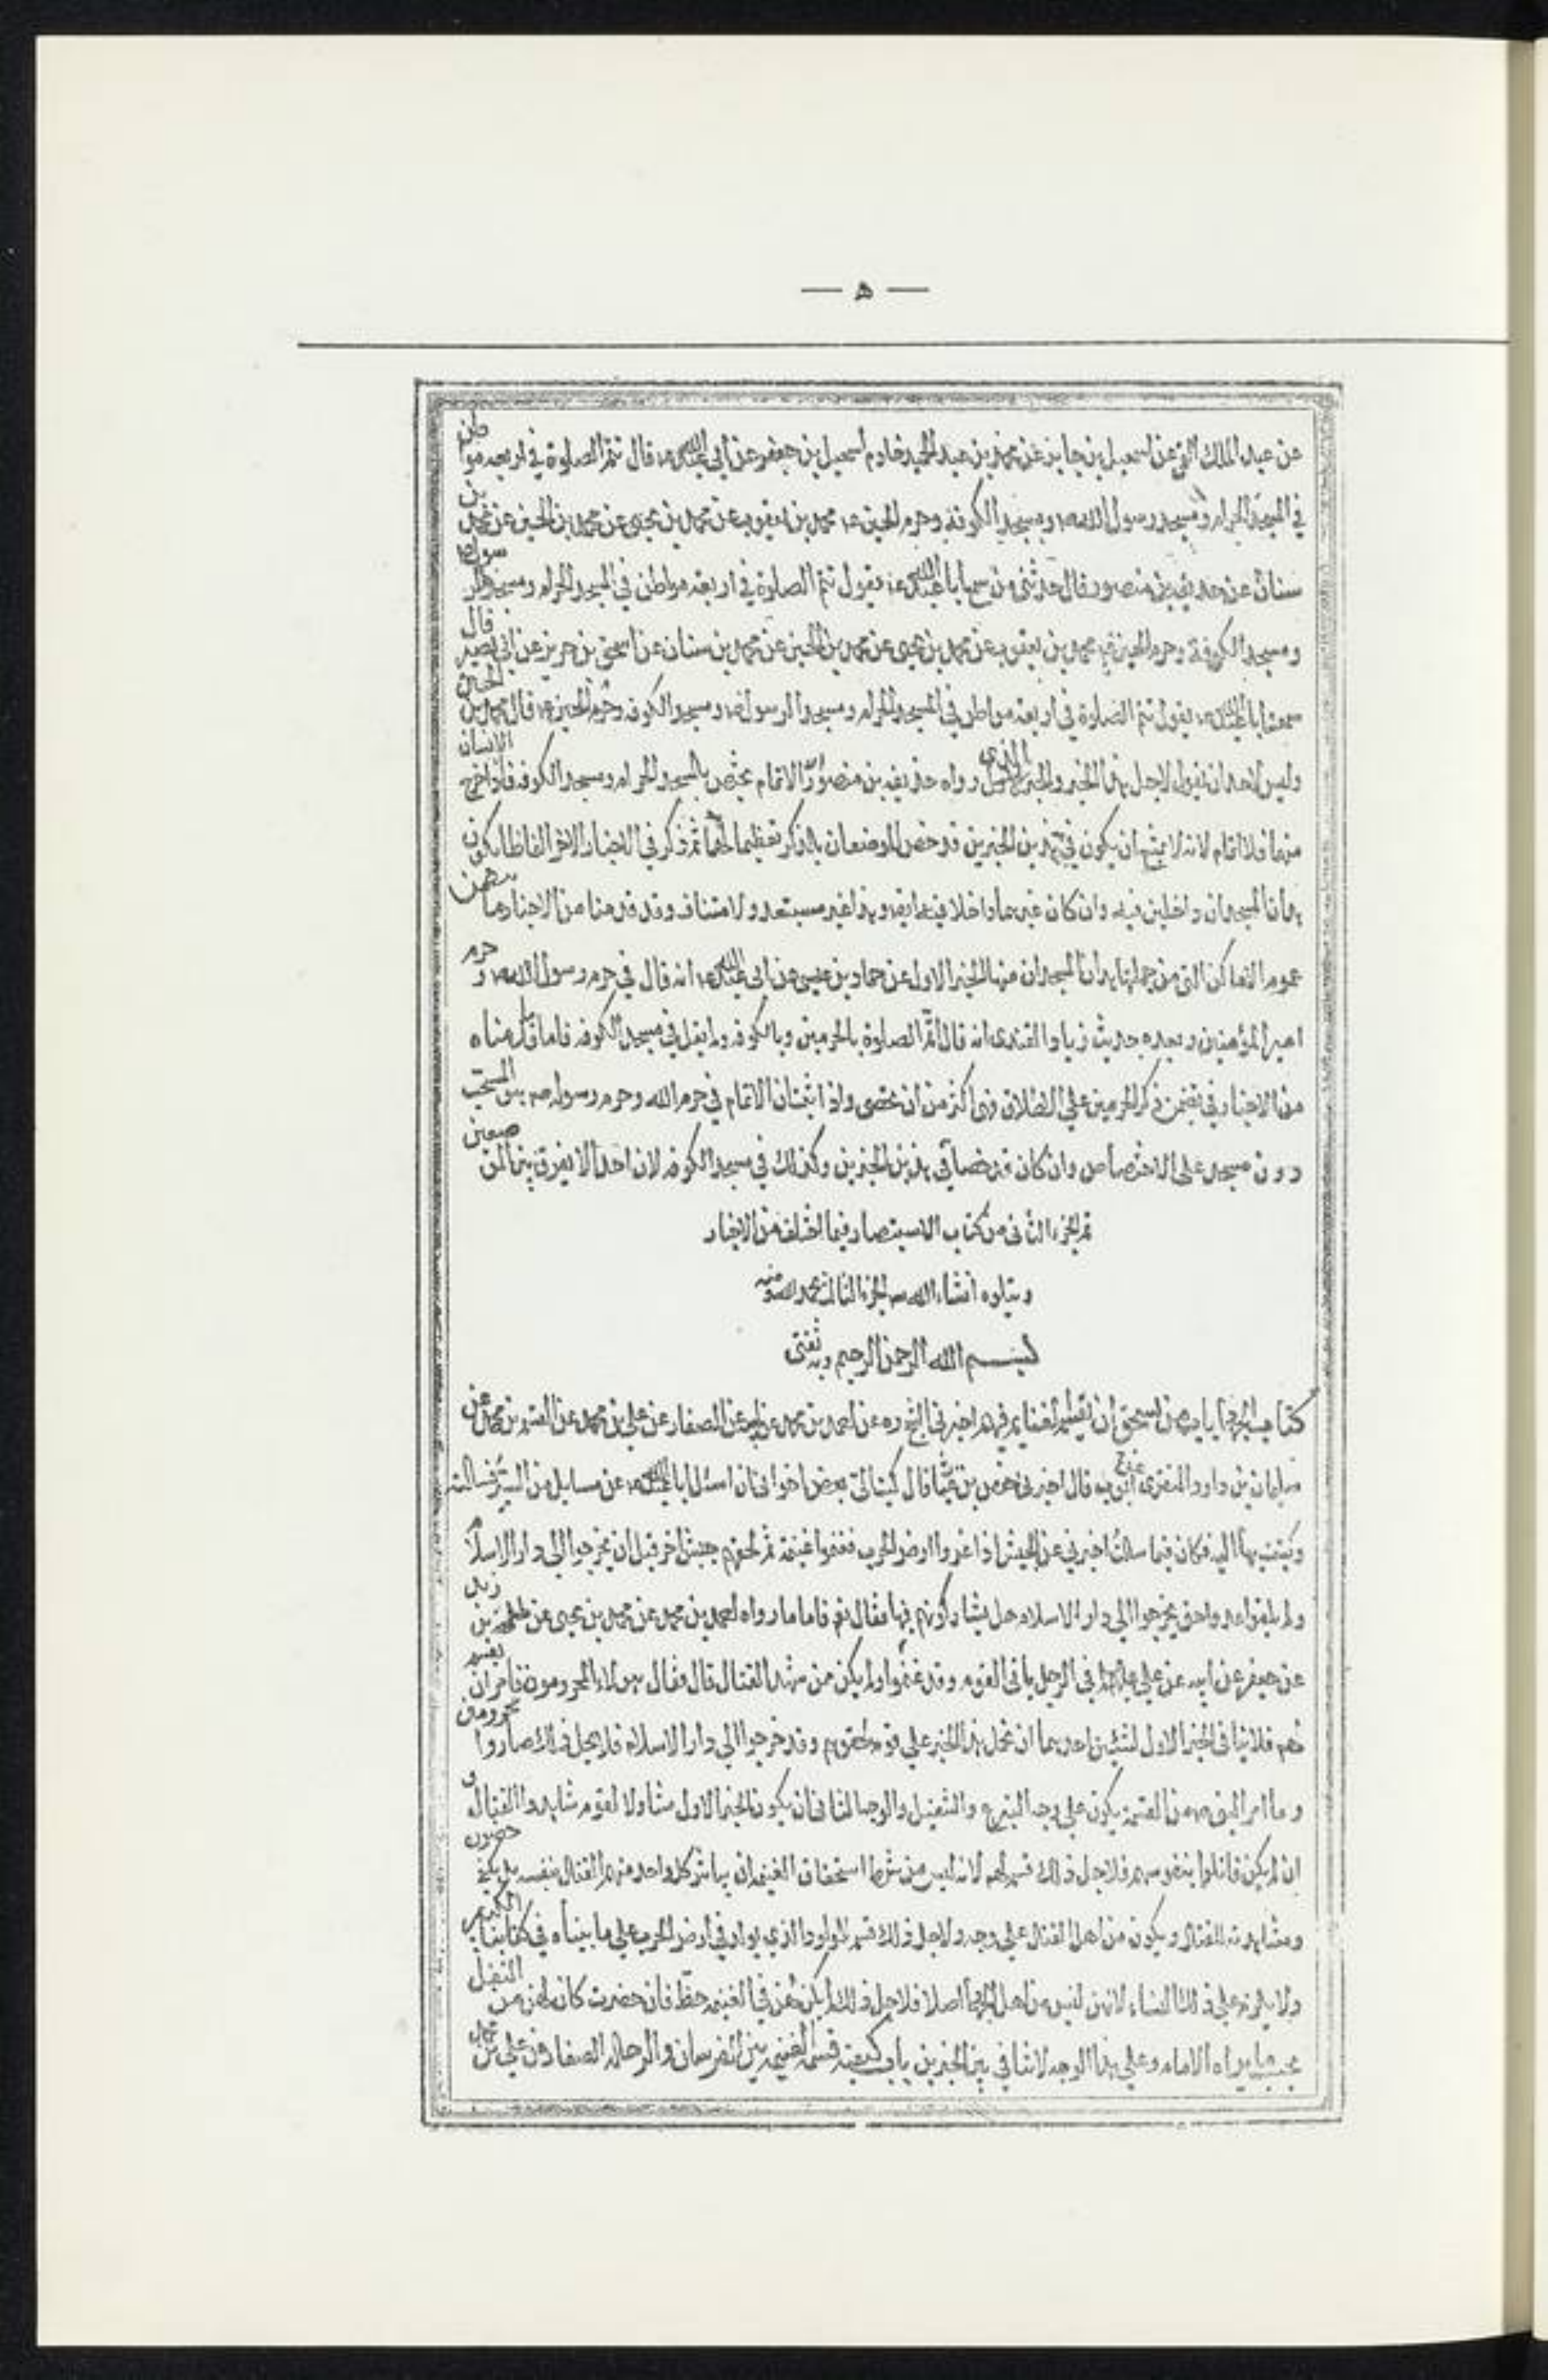 — ه —
عن عبد الملك القمي عن اسمعيل بن جابر عن عبد الحميد خادم اسمعيل بن جعفر عن ابي عبد الله ع قال تتم الصلوة في اربعة مواطن
في المسجد الحرام ومسجد رسول الله ص ومسجد الكوفة وحرم الحسين ع محمد بن يعقوب عن محمد بن يحيى عن محمد بن الحسين عن محمد بن
سنان عن حذيفة بن منصور قال حدثني من سمع ابا عبد الله ع يقول تتم الصلوة في اربعة مواطن في المسجد الحرام ومسجد الرسول ص
ومسجد الكوفة وحرم الحسين ع محمد بن يعقوب عن محمد بن يحيى عن محمد بن الحسين عن محمد بن سنان عن اسحق بن حريز عن ابي بصير قال
سمعت ابا عبد الله ع يقول تتم الصلوة في اربعة مواطن في المسجد الحرام ومسجد الرسول ص ومسجد الكوفة وحرم الحسين ع قال محمد بن الحسن
وليس لاحد ان يقول لاجل هذا الخبر والخبر الذي رواه حذيفة بن منصور ان الاتمام يختص بالمسجد الحرام ومسجد الكوفة فاذا خرج الانسان
منهما فلا اتمام لانه لا يمتنع ان يكون في هذين الخبرين قد خص الموضعان بالذكر تعظيما لهما ثم ذكر في الاخبار الاخر الفاظا يكون
هذان المسجدان داخلين فيه وان كان غيرهما داخلا فيه ايضا وهذا غير مستبعد ولا متناف وقد قدمنا من الاخبار ما يتضمن
عموم الاماكن التي من جملتها هذان المسجدان منها الخبر الاول عن حماد بن عيسى عن ابي عبد الله ع انه قال في حرم رسول الله ص وحرم
امير المؤمنين وبعده حديث زياد القندي انه قال اتم الصلوة بالحرمين وبالكوفه ولم يقل في مسجد الكوفه فاما ما قدمناه
من الاخبار في تضمن ذكر الحرمين على الاطلاق فهي اكثر من ان تحصى واذا ثبت ان الاتمام في حرم الله وحرم رسوله ص هو المستحب
دون مسجد على الاختصاص وان كان قد خصا في هذين الخبرين وكذلك في مسجد الكوفه لان احدا لا يفرق بين الموضعين
تم الجزء الثاني من كتاب الاستبصار فيما اختلف من الاخبار
ويتلوه انشاء الله الجزء الثالث بحمد الله ومنه
بسم الله الرحمن الرحيم وبه ثقتي
كتاب الجهاد باب من يستحق ان يقسم الغنايم فيهم اخبرني الشيخ ره عن احمد بن محمد عن ابيه عن الصفار عن علي بن محمد عن القسم بن محمد عن
سليمان بن داود المنقري قال اخبرني حفص بن غياث قال كتب الي بعض اخواني ان اسئل ابا عبد الله ع عن مسايل من السير فسالته
وكتبت بها اليه فكان فيما سالت اخبرني عن الجيش اذا غزوا ارض الحرب فغنموا غنيمة ثم لحقهم جيش اخر قبل ان يخرجوا الى دار الاسلام
ولم يلقوا عدوا حتى يخرجوا الى دار الاسلام هل يشاركونهم فيها فقال نعم فاما ما رواه احمد بن محمد عن محمد بن يحيى عن طلحة بن زيد
عن جعفر عن ابيه عن علي عليه السلام في الرجل ياتي القوم وقد غنموا ولم يكن ممن شهد القتال قال فقال هؤلاء المحرومون فامر ان يقسم
لهم فلا ينافي الخبر الاول لشيئين احدهما ان نحمل هذا الخبر على قوم لحقوهم وقد خرجوا الى دار الاسلام فلاجل ذلك صاروا محرومين
وما امر النبي ص من القسمة يكون على وجه التبرع والتنفيل والوجه الثاني ان يكون الخبر الاول متناولا لقوم شاهدوا القتال و
ان لم يكن قاتلوا بنفوسهم فلاجل ذلك قسم لهم لانه ليس من شرط استحقاق الغنيمة ان يباشر كل واحد منهم القتال بنفسه بل يكفي حضوره
ومشاهدته للقتال ويكون من اهل القتال على وجه ولاجل ذلك قسم للمولود الذي يولد في ارض الحرب على ما بيناه في كتابنا الكبير
ولا يلزم على ذلك النساء لانهن ليس من اهل الجهاد اصلا فلاجل ذلك لم يكن لهن في الغنيمة حظ فان حضرت كان لهن من النفل
بحسب ما يراه الامام وعلى هذا الوجه لا تنافي بين الخبرين باب كيفية قسمة الغنيمة بين الفرسان والرجالة الصفار عن علي بن محمد